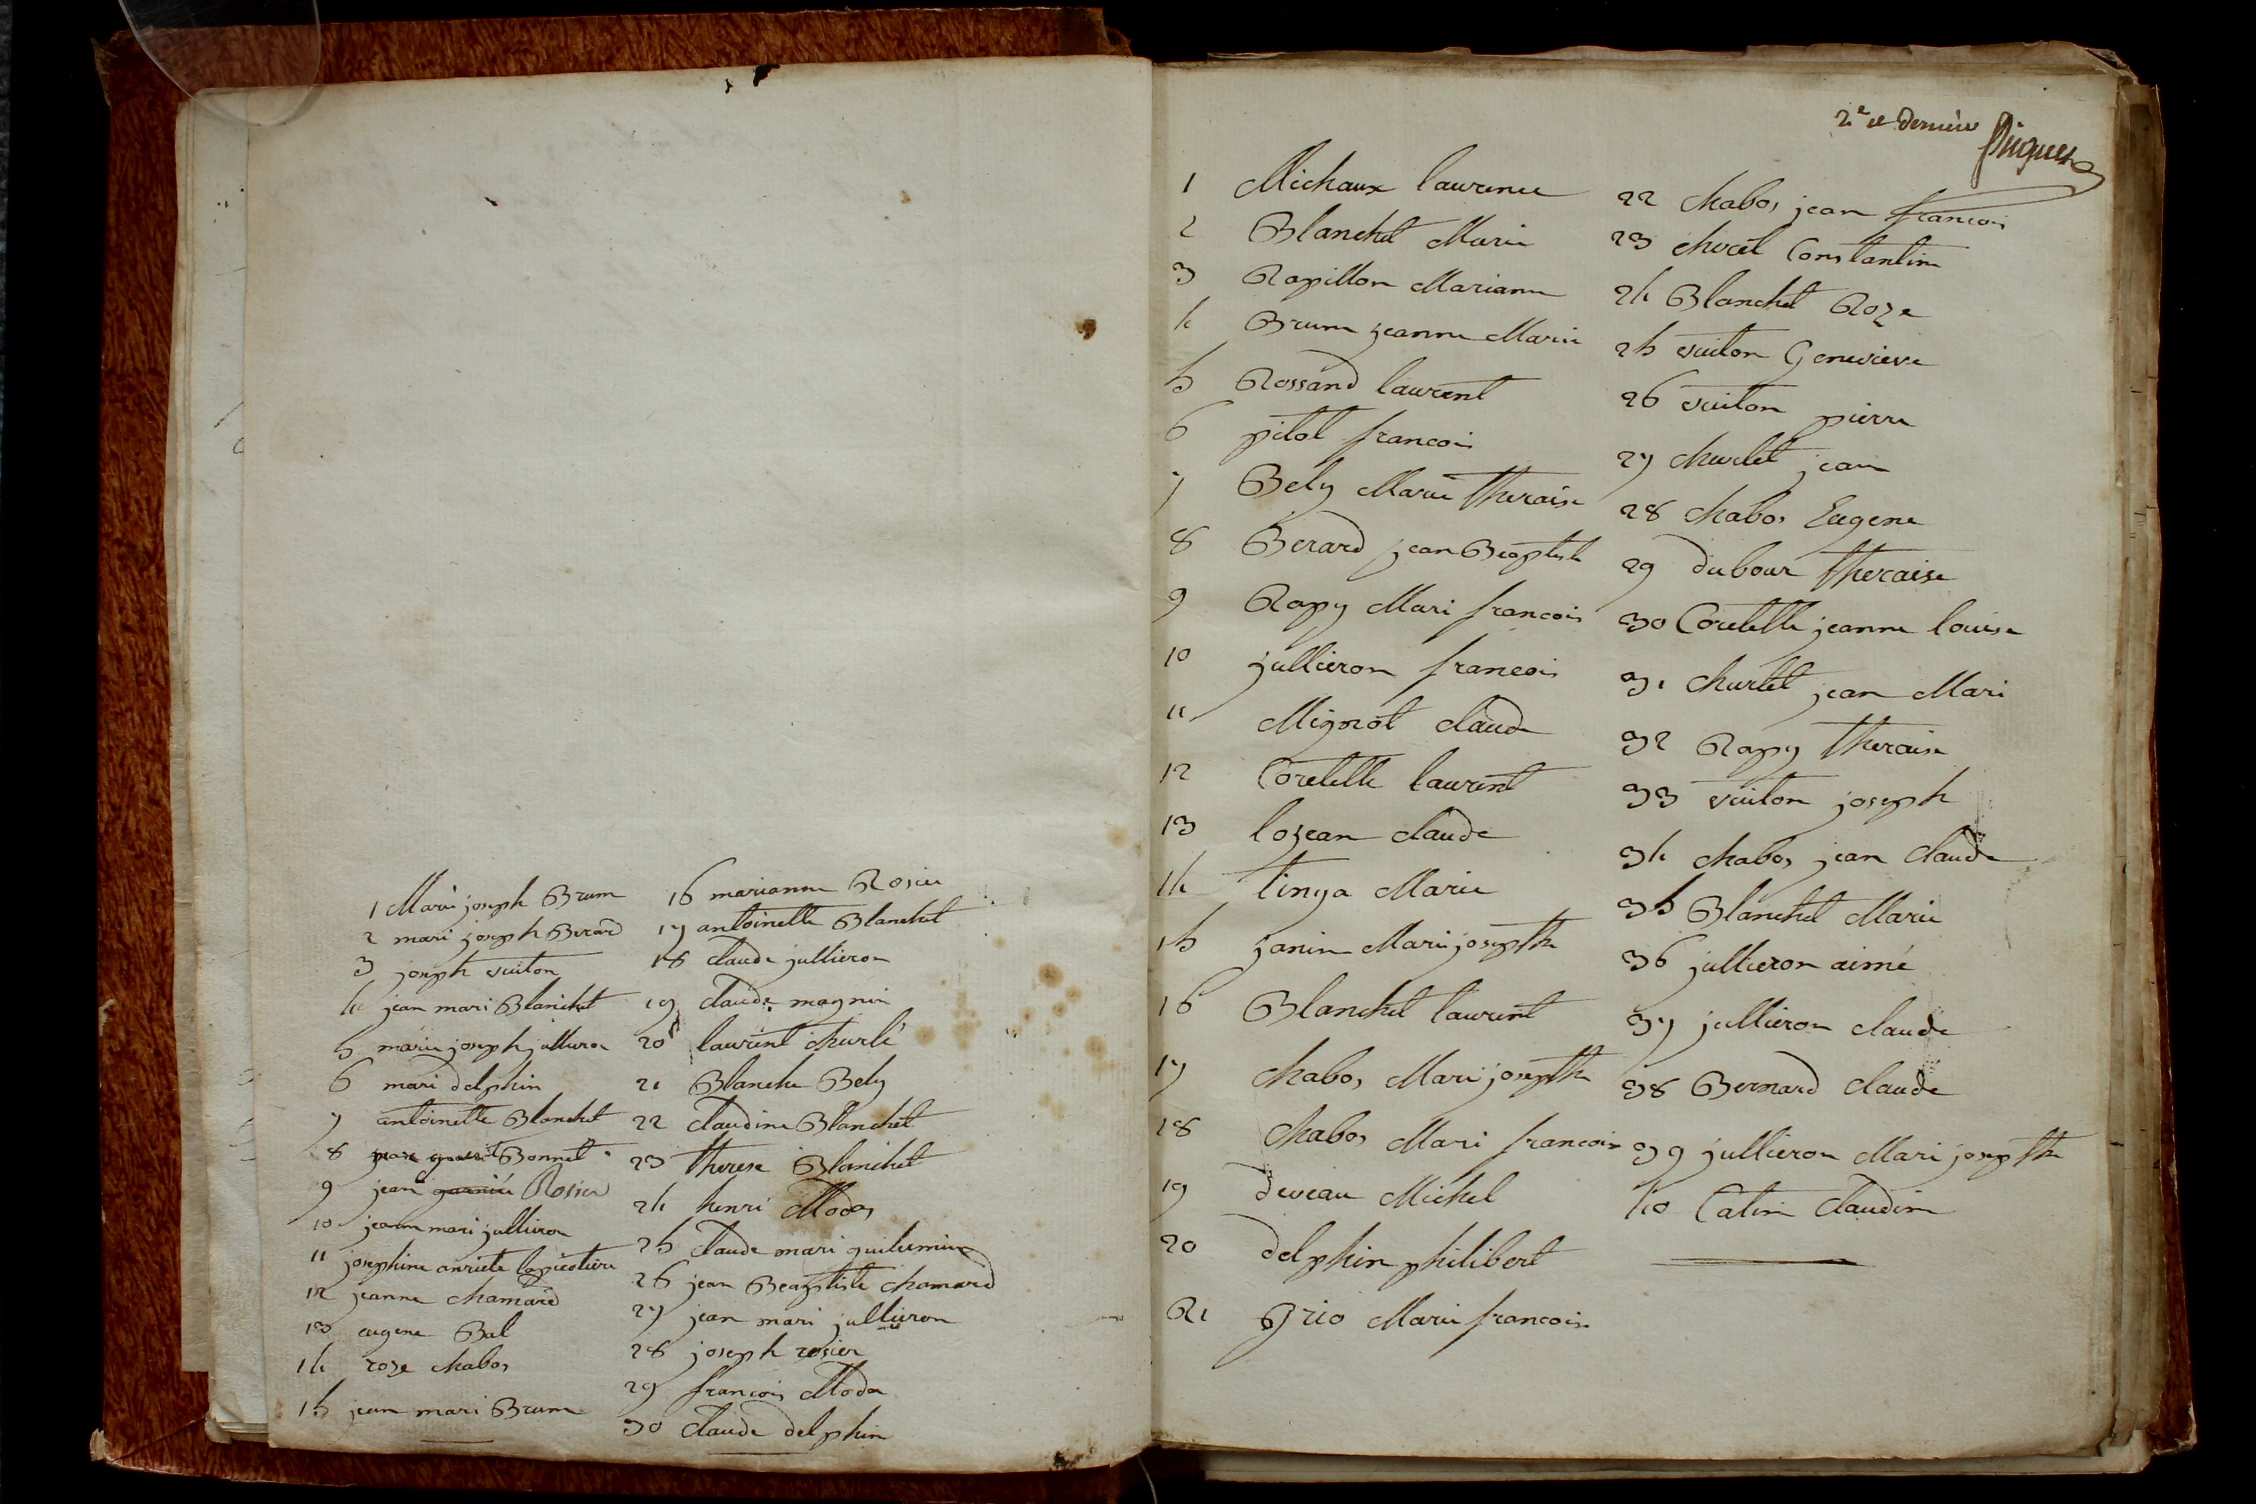 1 Marie joseph Brum
2 mari joseph Berard
3 joseph vuiton
4 jean mari Blanchet
5 marie joseph jullieron
6 mari delphin
7 antoinette Blanchet
8 Bonnet
9 jean garnier Rosier
10 jeann mari jullieron
11 josephine anriete lapicotiere
12 jeanne chamard
13 eugene Bal
14 roze chabos
15 jean mari Brum
16 marianne Rosier
17 antoinette Blanchet
18 claude jullieron
19 claude magnin
20 laurent churlé
21 Blanche Bely
22 claudine Blanchet
23 therese Blanchet
24 henri Modas
25 claude mari guilermin
26 jean Beaptiste chamard
27 jean mari jullieron
28 joseph rosier
29 francois Moda
30 claude delphin
2e et dernière
1 Michaux laurence
2 Blanchet Marie
3 Rapillon Mariann
4 Brum jeanne Marie
5 Rossand laurent
6 pitot francois
7 Bely Marie theraise
8 Berard jean Beaptiste
9 Rapy Mari francois
10 jullieron francois
11 Mignot claude
12 Coretelle laurent
13 lozean claude
14 tinya Marie
15 janin Marie josepth
16 Blanchet laurent
17 chabos Mari josepth
18 chabos Mari francois
19 deveau Michel
20 delphin philibert
21 Brio Marie francois
22 chabos jean francois
23 Constantin
24 Blanchet Roze
25 vuiton Genevieve
26 vuiton pierre
27 churlet jean
28 chabos Eugene
29 dubour theraise
30 Coretelle jeanne louise
31 churlet jean Mari
32 Rapy theraise
33 vuiton joseph
34 chabos jean claude
35 Blanchet Marie
36 jullieron aimé
37 jullieron claude
38 Bernard claude
39 jullieron Mari josepth
40 Catin claudine